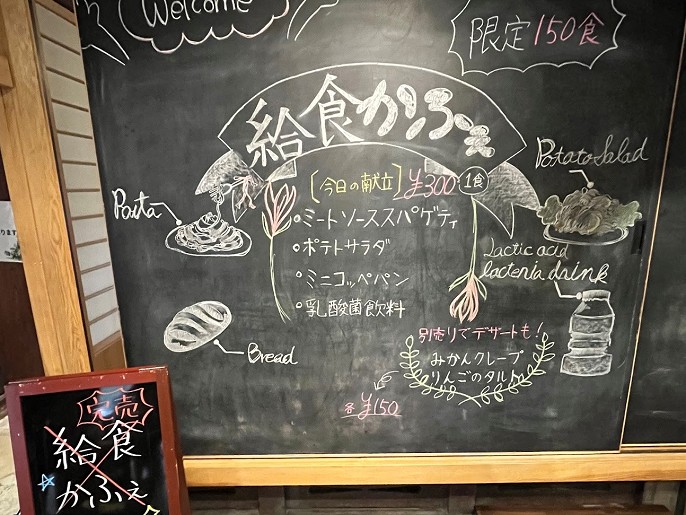 Welcome
限定150食
給食かふぇ
[今日の献立] ¥300 1食
・ミートソーススパゲティ
・ポテトサラダ
・ミニコッペパン
・乳酸菌飲料
Pasta
Bread
Potato Salad
Lactic acid
bacteria drink
別売りでデザートも!
みかんクレープ
りんごのタルト
各¥150
完売
給食
かふぇ
ります